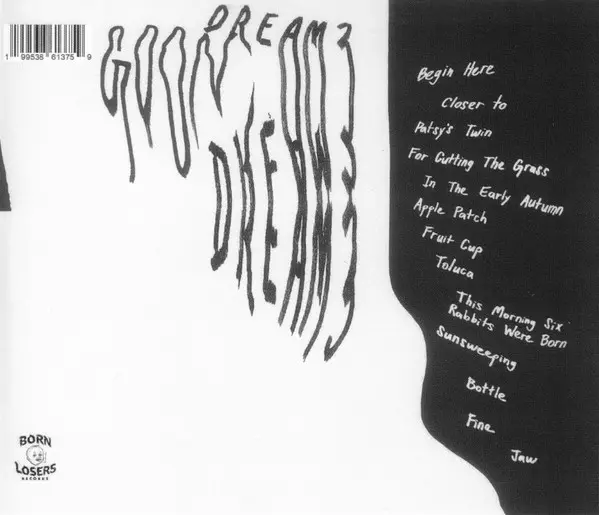 1 99538 61375 9
DREAM3
GOON
DREAM3
Begin Here
Closer to
Patsy's Twin
For Cutting The Grass
In The Early Autumn
Apple Patch
Fruit Cup
Toluca
This Morning Six
Rabbits Were Born
Sunsweeping
Bottle
Fine
Jaw
BORN
LOSERS
RECORDS